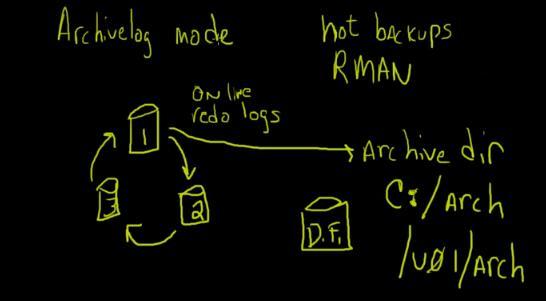 Archivelog mode
hot backups
RMAN
online
redo logs
1
3
2
Archive dir
C:/Arch
/u01/Arch
D.F.